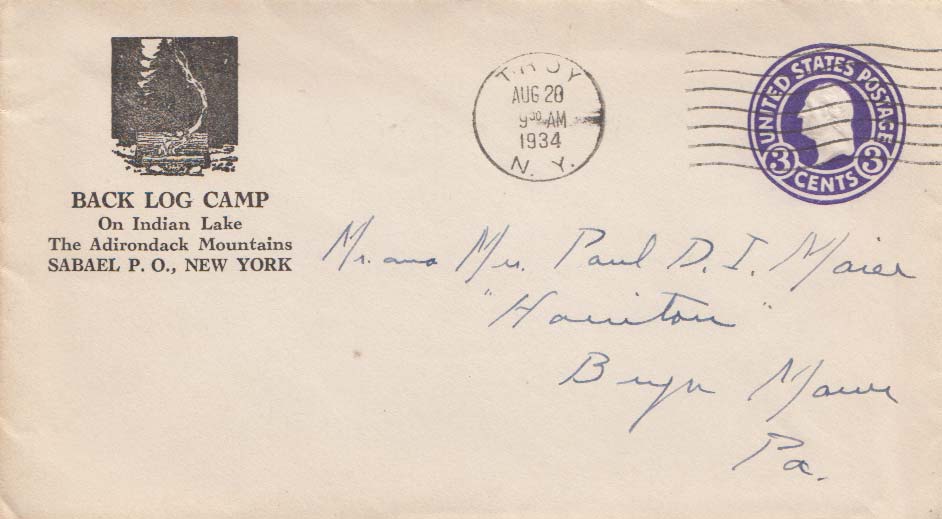 BACK LOG CAMP
On Indian Lake
The Adirondack Mountains
SABAEL P. O., NEW YORK
TROY
AUG 20
9 30 AM
1934
N. Y.
UNITED STATES POSTAGE
3 CENTS 3
Mr. and Mrs. Paul D. I. Maier
Bryn Mawr
Pa.